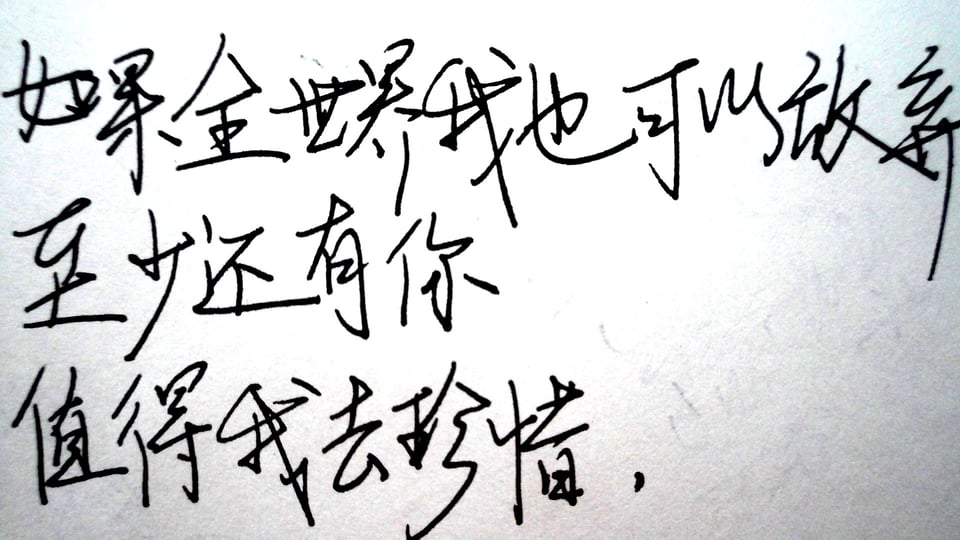 如果全世界我也可以放弃
至少还有你
值得我去珍惜,